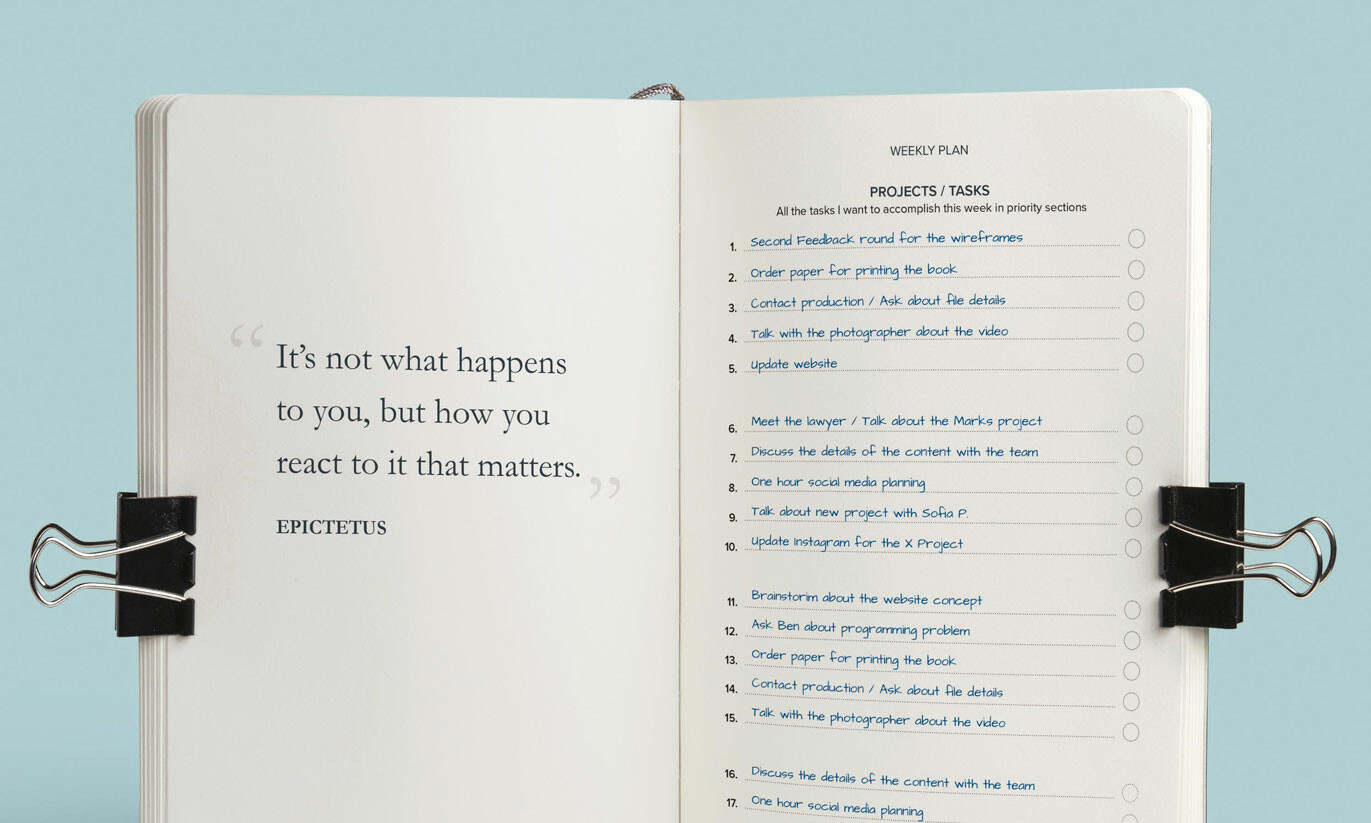 “It’s not what happens
to you, but how you
react to it that matters.”
EPICTETUS
WEEKLY PLAN
PROJECTS / TASKS
All the tasks I want to accomplish this week in priority sections
1. Second Feedback round for the wireframes
2. Order paper for printing the book
3. Contact production / Ask about file details
4. Talk with the photographer about the video
5. Update website
6. Meet the lawyer / Talk about the Marks project
7. Discuss the details of the content with the team
8. One hour social media planning
9. Talk about new project with Sofia P.
10. Update Instagram for the X Project
11. Brainstorim about the website concept
12. Ask Ben about programming problem
13. Order paper for printing the book
14. Contact production / Ask about file details
15. Talk with the photographer about the video
16. Discuss the details of the content with the team
17. One hour social media planning